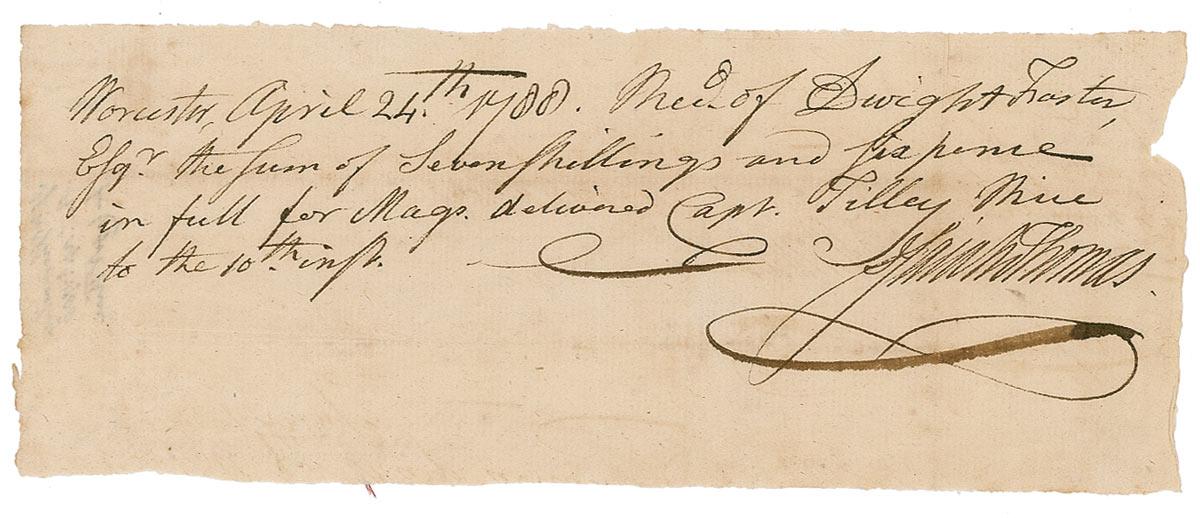 Worcester, April 24th. 1788. Recd. of Dwight Foster,
Esqr. the Sum of Seven Shillings and sixpence
in full for Mags. delivered Capt. Tilley Rice
to the 10th. inst.
Isaiah Thomas.